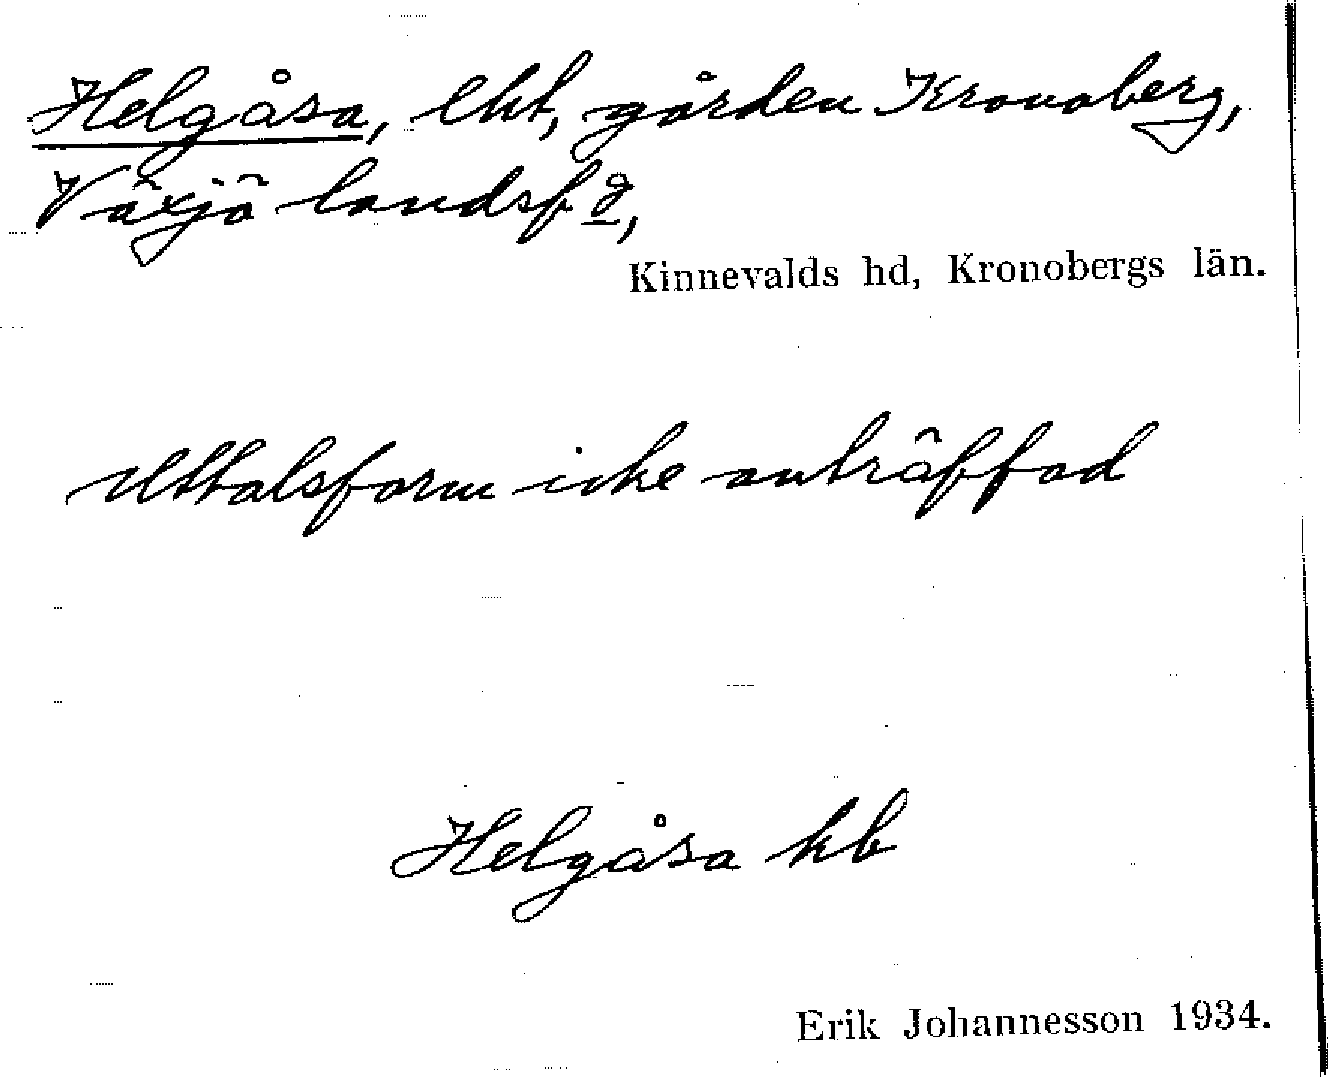 Helgåsa, lht, gården Kronoberg,
Växjö landsfd,
Kinnevalds hd, Kronobergs län.
Uttalsform icke anträffad
Helgåsa kb
Erik Johannesson 1934.